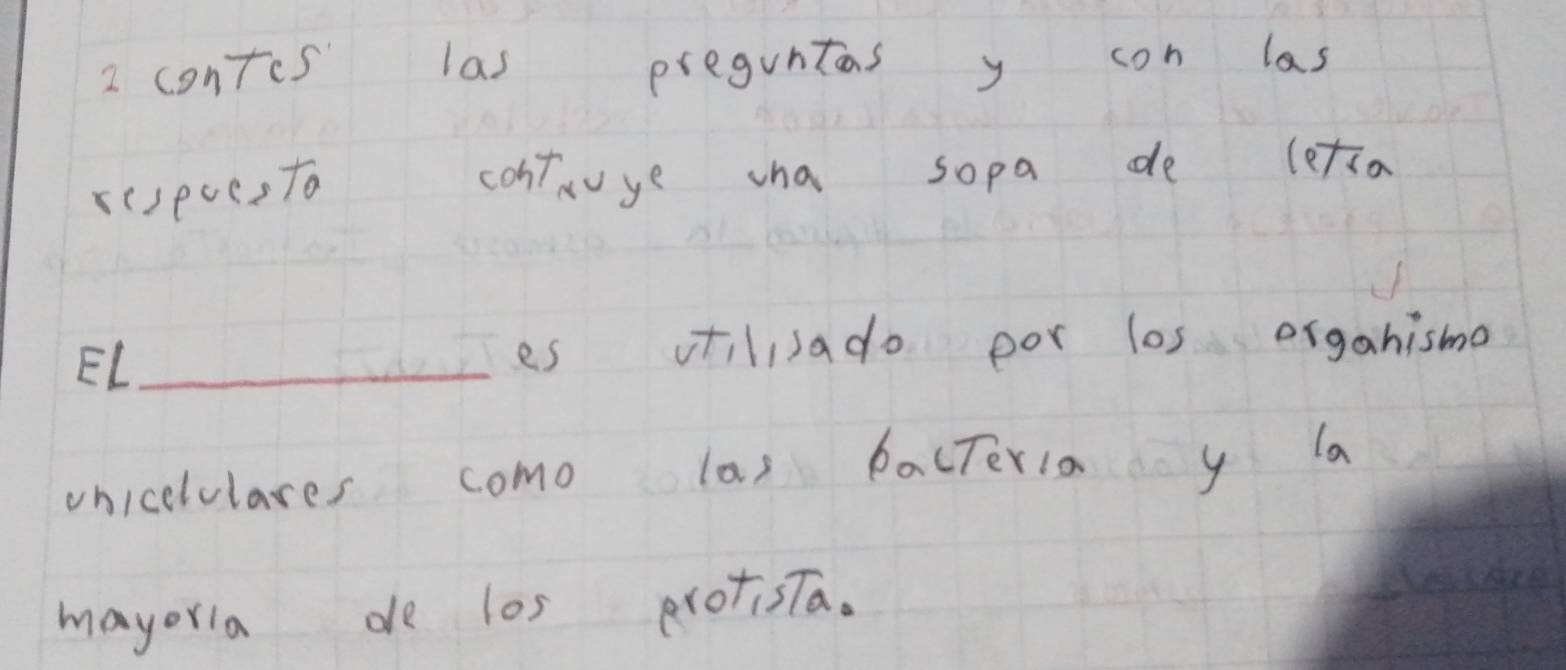 2 contes las preguntas y con las
respuesta contruye una sopa de letra
EL__________ es utilisado por los organismo
unicelulares como las bacteria y la
mayoria de los protista.